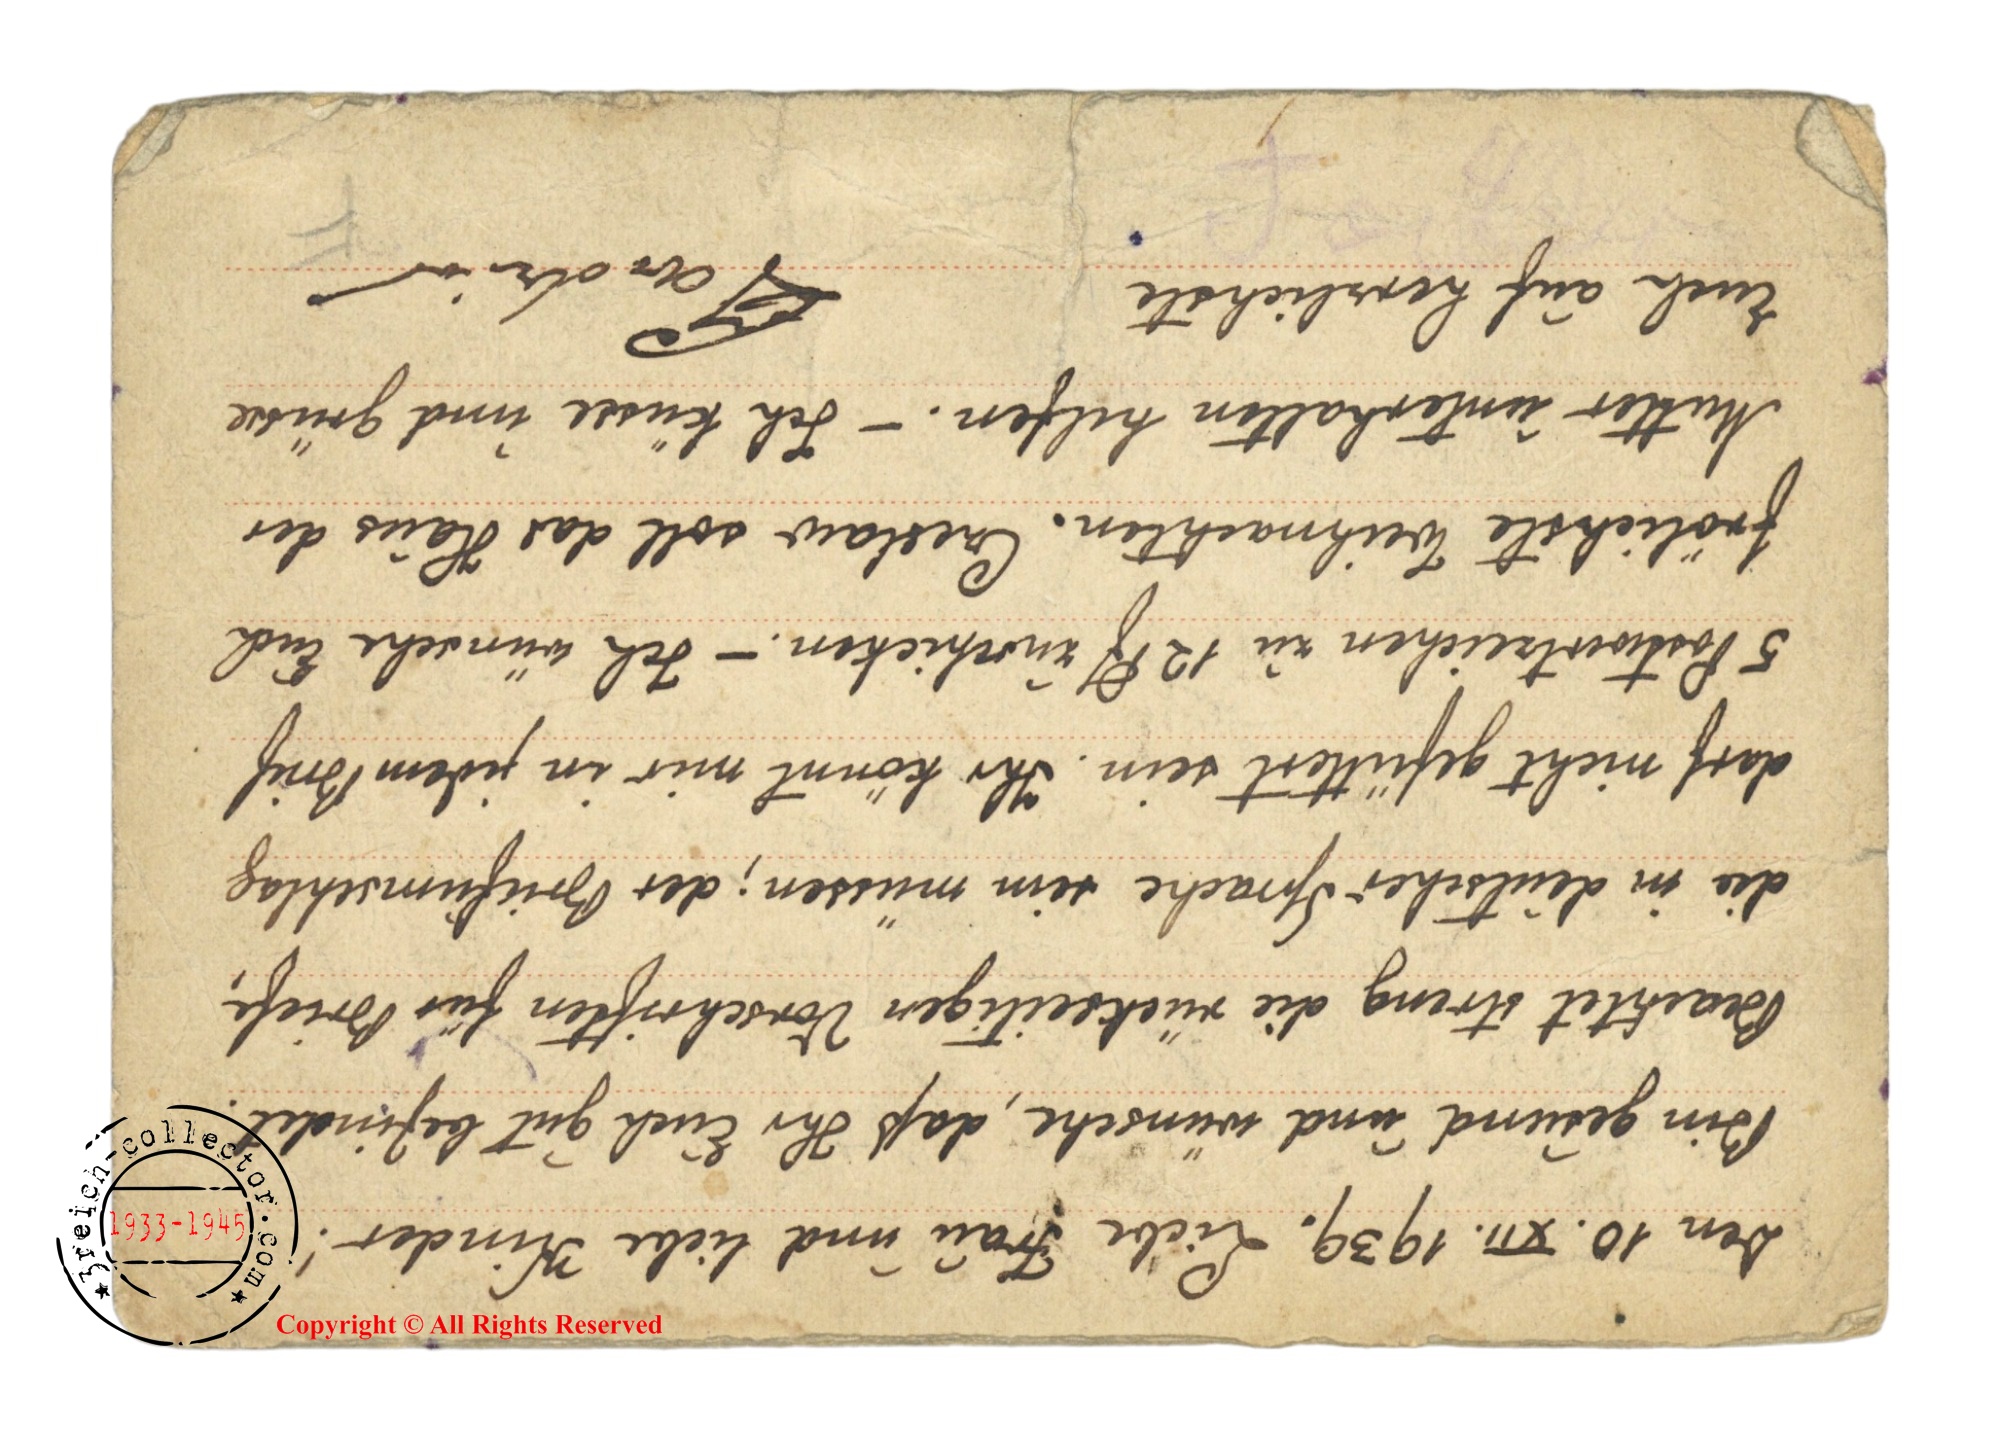 Den 10. XII. 1939. Liebe Frau und liebe Kinder!
Bin gesund und wünsche, daß Ihr Euch gut befindet.
Beachtet streng die rückseitigen Vorschriften für Briefe,
die in deutscher Sprache sein müssen; der Briefumschlag
darf nicht gefüttert sein. Ihr könnt mir in jedem Brief
5 Postwertzeichen zu 12 Pf zuschicken. – Ich wünsche Euch
frölichste Weihnachten. Czeslaw soll das Haus der
Mutter unterhalten helfen. – Ich küsse und grüsse
Euch auf herrlichste
3reich-collector.com
1933-1945
Copyright © All Rights Reserved